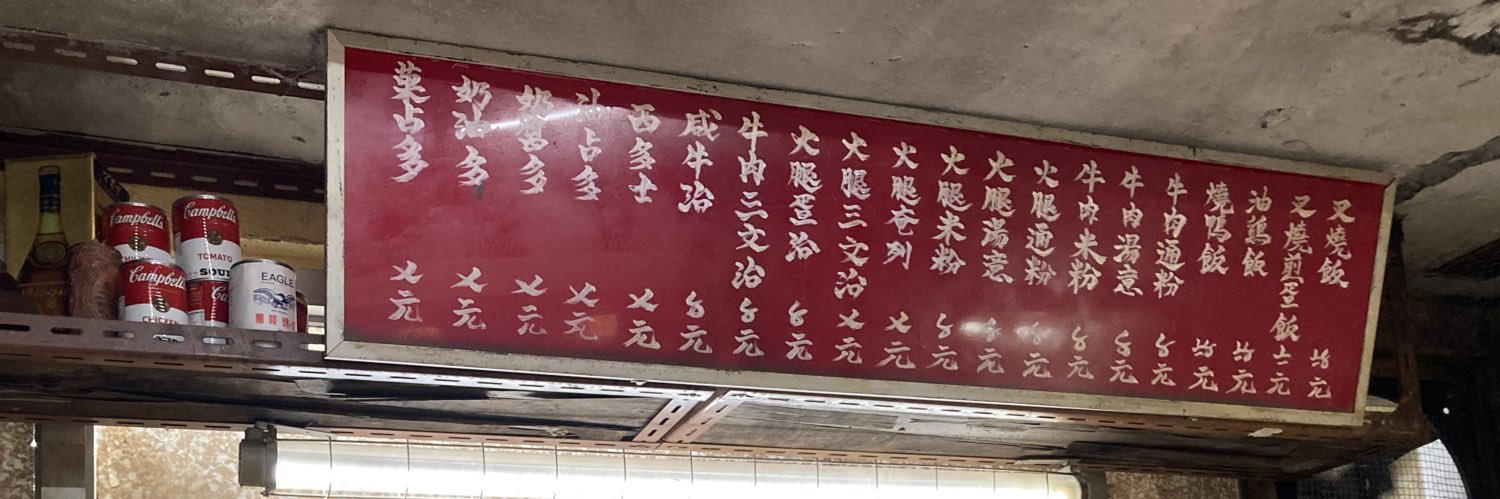 叉燒飯 元
叉燒煎蛋飯 元
油鷄飯 元
燒鴨飯 元
牛肉通粉 〥元
牛肉湯意 〥元
牛肉米粉 〥元
火腿通粉 〥元
火腿湯意 〥元
火腿米粉 〥元
火腿奄列 〤元
火腿三文治 〤元
火腿蛋治 〥元
牛肉三文治 〥元
咸牛治 〥元
西多士 〤元
油占多 〤元
奶醬多 〤元
奶油多 〤元
菓占多 〤元
Campbell's
Campbell's
TOMATO
SOUP
Campbell's
CHICKEN
EAGLE